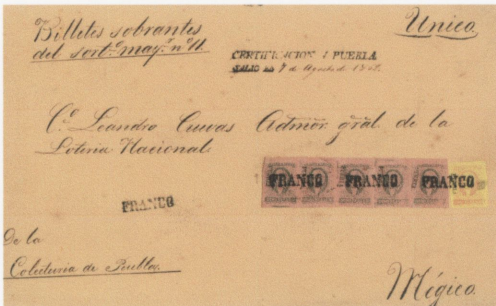 Billetes sobrantes
del sort.º may.r nº 11.
Unico.
CERTIFICACION PUEBLA
SALIO EN 7 de Agosto de
C.º Leandro Cuevas Admor. gral. de la
Loteria Nacional
FRANCO FRANCO FRANCO
FRANCO
De la
Colecturia de Puebla.
Mégico.